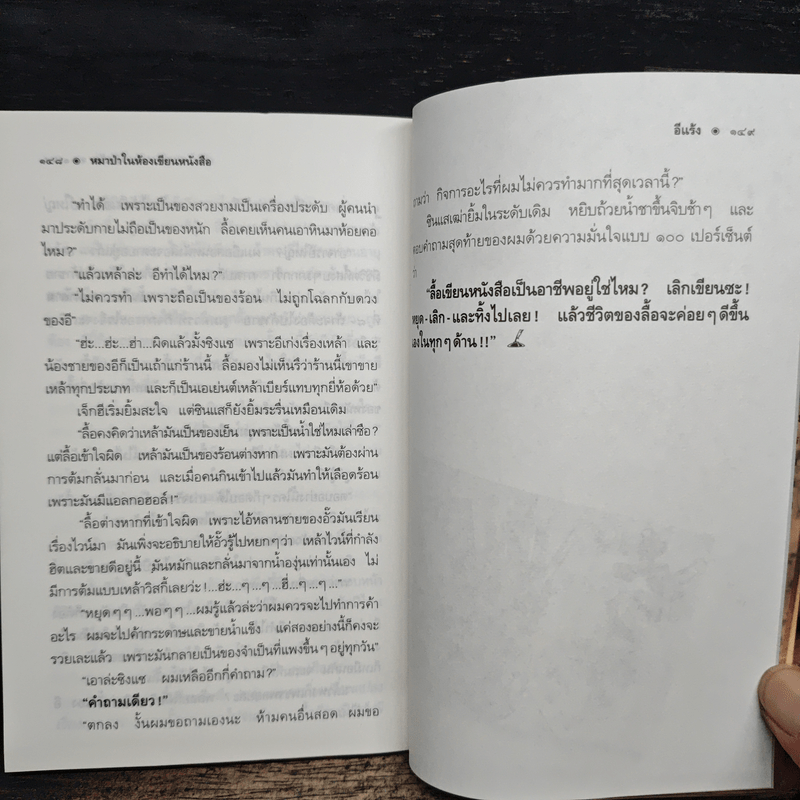 ๑๔๘ ๏ หมาป่าในห้องเขียนหนังสือ
“ทำได้ เพราะเป็นของสวยงามเป็นเครื่องประดับ ผู้คนนำ
มาประดับกายไม่ถือเป็นของหนัก ลื้อเคยเห็นคนเอาหินมาห้อยคอ
ไหม?”
“แล้วเหล้าล่ะ อีทำได้ไหม?”
“ไม่ควรทำ เพราะถือเป็นของร้อน ไม่ถูกโฉลกกับดวง
ของอี”
“ฮ่ะ...ฮ่ะ...ฮ่า...ผิดแล้วมั้งซิงแซ เพราะอีเก่งเรื่องเหล้า และ
น้องชายของอีก็เป็นเถ้าแก่ร้านนี้ ลื้อมองไม่เห็นรึว่าร้านนี้เขาขาย
เหล้าทุกประเภท และก็เป็นเอเย่นต์เหล้าเบียร์แทบทุกยี่ห้อด้วย”
เจ็กฮีเริ่มยิ้มสะใจ แต่ซินแสก็ยังยิ้มระรื่นเหมือนเดิม
“ลื้อคงคิดว่าเหล้ามันเป็นของเย็น เพราะเป็นน้ำใช่ไหมเล่าซือ?
แต่ลื้อเข้าใจผิด เหล้ามันเป็นของร้อนต่างหาก เพราะมันต้องผ่าน
การต้มกลั่นมาก่อน และเมื่อคนกินเข้าไปแล้วมันทำให้เลือดร้อน
เพราะมันมีแอลกอฮอล์!”
“ลื้อต่างหากที่เข้าใจผิด เพราะไอ้หลานชายของอั๊วมันเรียน
เรื่องไวน์มา มันเพิ่งจะอธิบายให้อั๊วรู้ไปหยกๆ ว่า เหล้าไวน์ที่กำลัง
ฮิตและขายดีอยู่นี้ มันหมักและกลั่นมาจากน้ำองุ่นเท่านั้นเอง ไม่
มีการต้มแบบเหล้าวิสกี้เลยว่ะ!...ฮ่ะ...ๆ...ๆ...ฮี่...ๆ...ๆ...”
“หยุดๆๆ...พอๆๆ...ผมรู้แล้วล่ะว่าผมควรจะไปทำการค้า
อะไร ผมจะไปค้ากระดาษและขายน้ำแข็ง แค่สองอย่างนี้ก็คงจะ
รวยเละแล้ว เพราะมันกลายเป็นของจำเป็นที่แพงขึ้นๆ อยู่ทุกวัน”
“เอาล่ะซิงแซ ผมเหลืออีกกี่คำถาม?”
“คำถามเดียว!”
“ตกลง งั้นผมขอถามเองนะ ห้ามคนอื่นสอด ผมขอ
อีแร้ง ๏ ๑๔๙
ถามว่า กิจการอะไรที่ผมไม่ควรทำมากที่สุดเวลานี้?”
ซินแสเฒ่ายิ้มในระดับเดิม หยิบถ้วยน้ำชาขึ้นจิบช้าๆ และ
ตอบคำถามสุดท้ายของผมด้วยความมั่นใจแบบ ๑๐๐ เปอร์เซ็นต์
ว่า
“ลื้อเขียนหนังสือเป็นอาชีพอยู่ใช่ไหม? เลิกเขียนซะ!
หยุด-เลิก-และทิ้งไปเลย! แล้วชีวิตของลื้อจะค่อยๆ ดีขึ้น
เองในทุกๆ ด้าน!!”